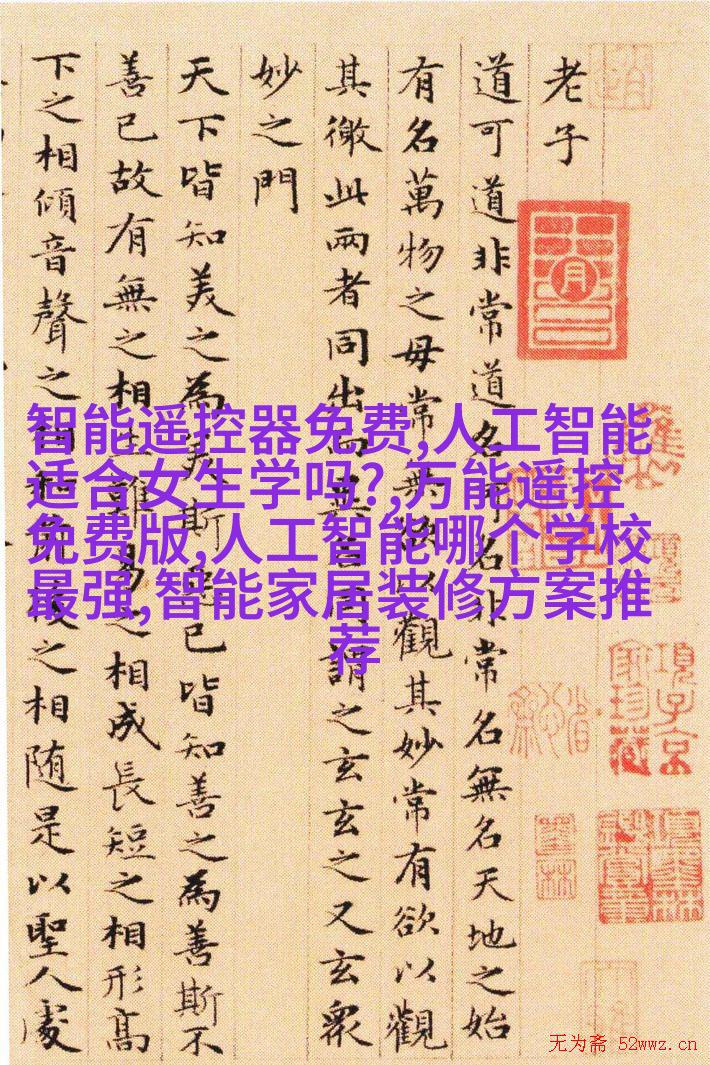 老子
道可道非常道名可名非常名無名天地之始
有名萬物之母常無欲以觀其妙常有欲以觀
其徼此兩者同出而異名同謂之玄玄之又玄眾
妙之門
天下皆知美之為美斯惡已皆知善之為善斯不
善已故有無之相生難易之相成長短之相形高
下之相傾音聲之相和前後之相随是以聖人處
智能遥控器免费,人工智能
适合女生学吗?,万能遥控
免费版,人工智能哪个学校
最强,智能家居装修方案推
荐
項子京
家珍藏
无为斋 52wwz.cn